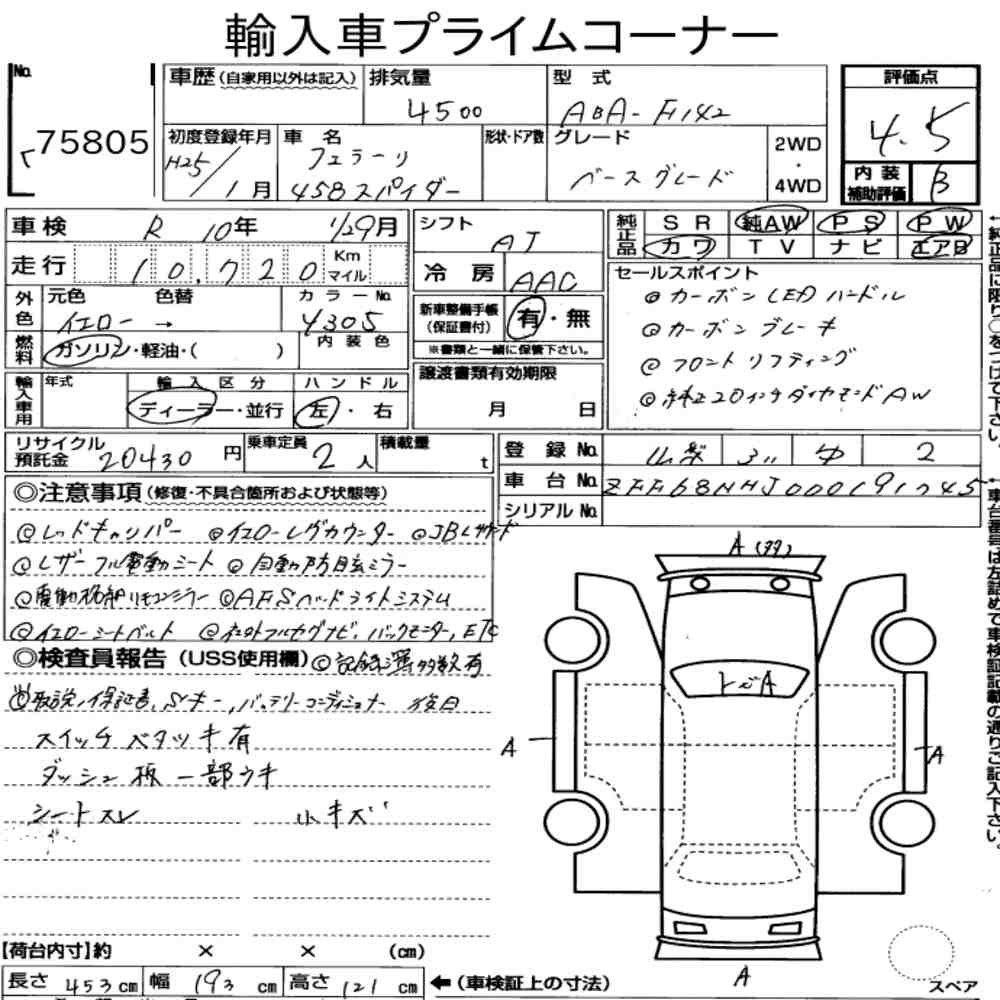 輸入車プライムコーナー
No.
75805
車歴(自家用以外は記入)
排気量
4500
型式
ABA-F142
評価点
4.5
初度登録年月
H25/1月
車名
フェラーリ
458スパイダー
形状・ドア数
グレード
ベースグレード
2WD
・
4WD
内装
補助評価
B
車検 R 10年 1/29月
走行 10,720 Km マイル
外色 元色 色替 カラーNo.
イエロー → 4305
燃料 ガソリン・軽油・( ) 内装色
輸入車用 年式 輸入区分 ハンドル
ディーラー・並行 左・右
シフト AT
冷房 AAC
新車整備手帳
(保証書付) 有・無
※書類と一緒に保管下さい。
譲渡書類有効期限
月 日
純正品 SR 純AW PS PW
カワ TV ナビ エアB
セールスポイント
◎カーボンLEDハンドル
◎カーボンブレーキ
◎フロントリフティング
◎純正20インチダイヤモンドAW
←純正品に限り○をつけて下さい。
リサイクル
預託金 20430円
乗車定員 2人
積載量 t
登録No. 山梨 311 ゆ 2
車台No. ZFF68NHJ000191745
シリアルNo.
←車台番号は左詰めで車検証記載の通りご記入下さい。
◎注意事項(修復・不具合箇所および状態等)
◎レッドキャリパー ◎イエローレヴカウンター ◎JBLサウンド
◎レザーフル電動シート ◎自動防眩ミラー
◎電動格納リモコンミラー ◎AFSヘッドライトシステム
◎イエローシートベルト ◎社外フルセグナビ,バックモニター,ETC
◎検査員報告(USS使用欄) ◎記録簿多数有
取説,保証書,Sキー,バッテリーコンディショナー 後日
スイッチベタツキ有
ダッシュ板一部ウキ
シートスレ 小キズ
A
トビA
A
A
A
【荷台内寸】約 × × (cm)
長さ 453cm 幅 193cm 高さ 121cm ←(車検証上の寸法)
スペア